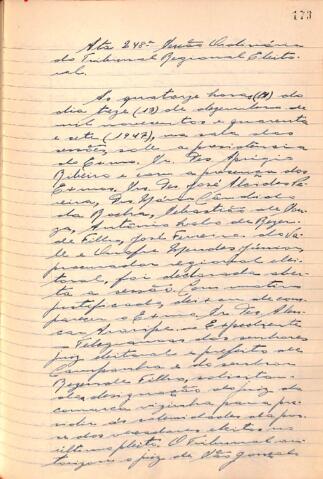 173
Ata 248ª Sessão Ordinária
do Tribunal Regional Eleito-
ral.
Às quatorze horas (14) do
dia treze (13) de dezembro de
mil novecentos e quarenta
e sete (1947), na sala das
sessões, sob a presidência
do Exmo. Sr. Des. Aprigio
Ribeiro e com a presença dos
Exmos. Srs. Des. José Alcides Pe-
reira, Des. Candido
da Rocha, Sebastião de Sou-
za, Antônio Pedro de Rezen-
de Filho, José do Va-
le e Onofre Mendes Júnior,
procurador regional elei-
toral, foi declarada aber-
ta a sessão. Com motivo
justificado, deixou de com-
parecer o Exmo. Sr. Des. Alen-
car Araripe. Expediente
- Telegramas dos senhores
juiz eleitoral e prefeito de
Campanha e do senhor
Rezende Filho, solicitan-
do designação do juiz da
comarca vizinha para pre-
sidir às solenidades da pos-
se dos vereadores eleitos no
último pleito. O Tribunal au-
torizou o juiz de São Gonçalo